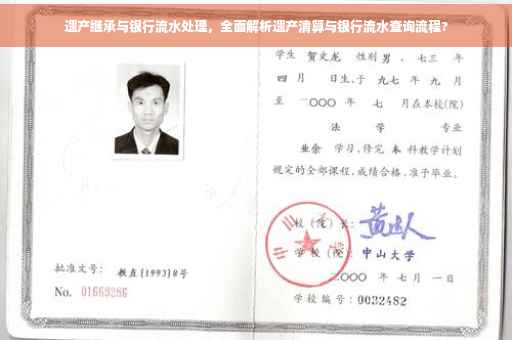 遗产继承与银行流水处理，全面解析遗产清算与银行流水查询流程？
学生 贺文龙 性别 男 、七三 年
四 月 日生,于 九七 年 九 月
至 二〇〇〇 年 七 月在本校(院)
法 学 专业
业余 学习,修完 本 科教学计划
规定的全部课程,成绩合格,准予毕业。
校(院)长:
学 校(院): 中山大学
二〇〇〇 年 七 月 一 日
批准文号: 教直[1993]8号
No. 01669286
学校编号: 0032482